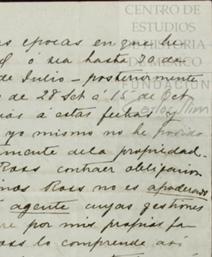 CENTRO DE
ESTUDIOS
DE MÉXICO
FUNDACIÓN
as epocas en que he
ó sea hasta 30 de
de Julio - posteriormente
de 28 Set á 15 de Oct
ias á estas fechas y
yo mismo no he podido
mente de la propiedad.
Ross contraer obligacion
Ross no es apoderado
agente cuyas gestiones
re por mis propias
oss lo comprende asi